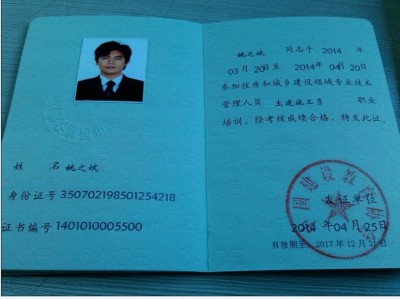 姓 名 姚之斌
身份证号 350702198501254218
证书编号 1401010005500
姚之斌 同志于 2014 年
03月20日至 2014年04月20日
参加住房和城乡建设领域专业技术
管理人员 土建施工员 职业
培训，经考核成绩合格，特发此证。
中国建设教育协会
发证单位
2014年04月25日
有效期至：2017年12月31日